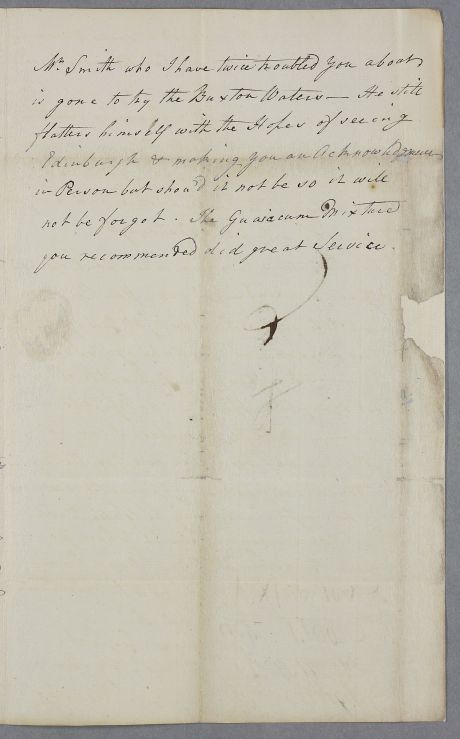 Mr Smith who I have twice troubled you about
is gone to try the Buxton Waters — He still
flatters himself with the Hopes of seeing
Edinburgh & making you an Acknowledgment
in Person but shou'd it not be so it will
not be forgot. The Guaiacum Mixture
you recommended did great Service.